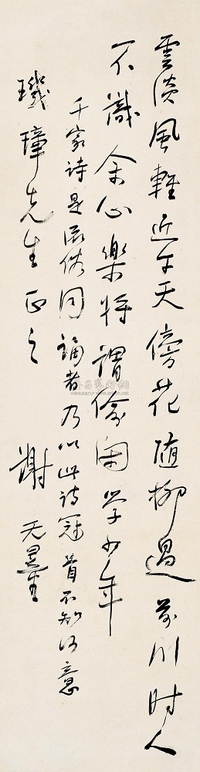 雲淡風輕近午天傍花随柳過前川时人
不識余心樂将謂偷閑学少年
千家诗是流俗同诵者乃以此诗冠首不知何意
璣璋先生正之
謝无量